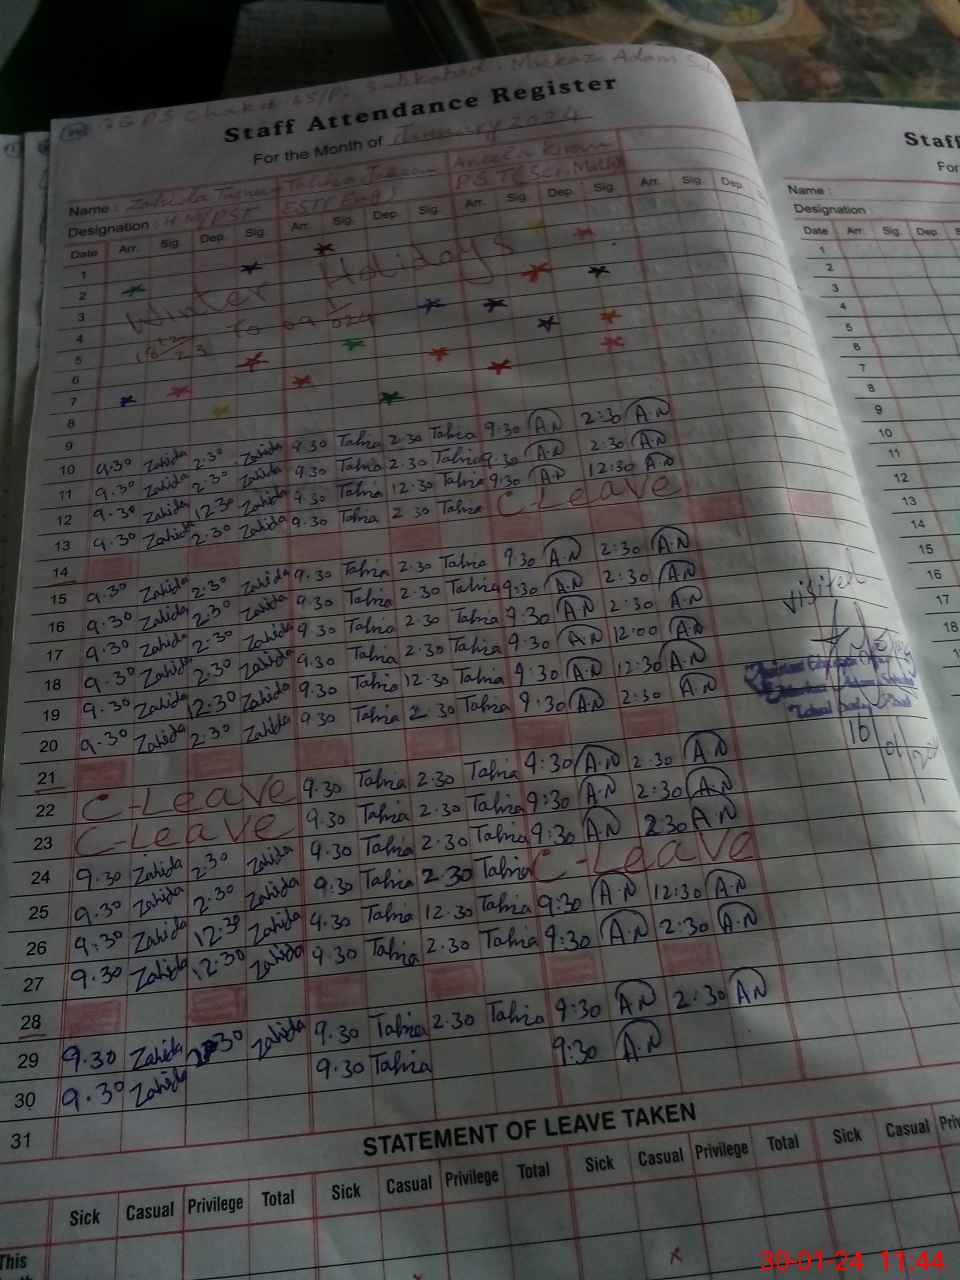 G.P.S Chak # 65/P. Sadikabad. Markaz Adam
Staff Attendance Register
For the Month of January 2024
Name : Zahida
Designation : HM/PST ESTT Eng PST
Date Arr. Sig. Dep. Sig. Arr. Sig. Dep. Sig. Arr. Sig. Dep. Sig. Arr. Sig. Dep
1
2
3 Winter Holidays
4 To 09
5
6
7
8
9
10 9.30 Zahida 2.30 Zahida 9.30 Tahira 2.30 Tahira 9.30 A.N 2:30 A.N
11 9.30 Zahida 2.30 Zahida 9.30 Tahira 2.30 Tahira 9:30 A.N 2:30 A.N
12 9.30 Zahida 12.30 Zahida 9.30 Tahira 12.30 Tahira 9:30 A.N 12:30 A.N
13 9.30 Zahida 2.30 Zahida 9.30 Tahira 2.30 Tahira C-Leave
14
15 9.30 Zahida 2.30 Zahida 9.30 Tahira 2.30 Tahira 9:30 A.N 2:30 A.N
16 9.30 Zahida 2.30 Zahida 9.30 Tahira 2.30 Tahira 9:30 A.N 2:30 A.N
17 9.30 Zahida 2.30 Zahida 9.30 Tahira 2.30 Tahira 9:30 A.N 2:30 A.N
18 9.30 Zahida 2.30 Zahida 9.30 Tahira 2.30 Tahira 9:30 A.N 12:00 A.N
19 9.30 Zahida 12.30 Zahida 9.30 Tahira 12.30 Tahira 9:30 A.N 12:30 A.N
20 9.30 Zahida 2.30 Zahida 9.30 Tahira 2.30 Tahira 9:30 A.N 2:30 A.N
21
22 C-Leave 9.30 Tahira 2.30 Tahira 9:30 A.N 2:30 A.N
23 C-Leave 9.30 Tahira 2.30 Tahira 9:30 A.N 2:30 A.N
24 9.30 Zahida 2.30 Zahida 9.30 Tahira 2.30 Tahira 9:30 A.N 2.30 A.N
25 9.30 Zahida 2.30 Zahida 9.30 Tahira 2.30 Tahira C-Leave
26 9.30 Zahida 12.30 Zahida 9.30 Tahira 12.30 Tahira 9:30 A.N 12:30 A.N
27 9.30 Zahida 12.30 Zahida 9.30 Tahira 2.30 Tahira 9:30 A.N 2:30 A.N
28
29 9.30 Zahida 2.30 Zahida 9.30 Tahira 2.30 Tahira 9:30 A.N 2:30 A.N
30 9.30 Zahida 9.30 Tahira 9:30 A.N
31
visited
16
STATEMENT OF LEAVE TAKEN
Sick Casual Privilege Total Sick Casual Privilege Total Sick Casual Privilege Total Sick Casual
This
Staff
Name :
Designation :
Date Arr. Sig. Dep.
1
2
3
4
5
6
7
8
9
10
11
12
13
14
15
16
17
18
30-01-24 11:44